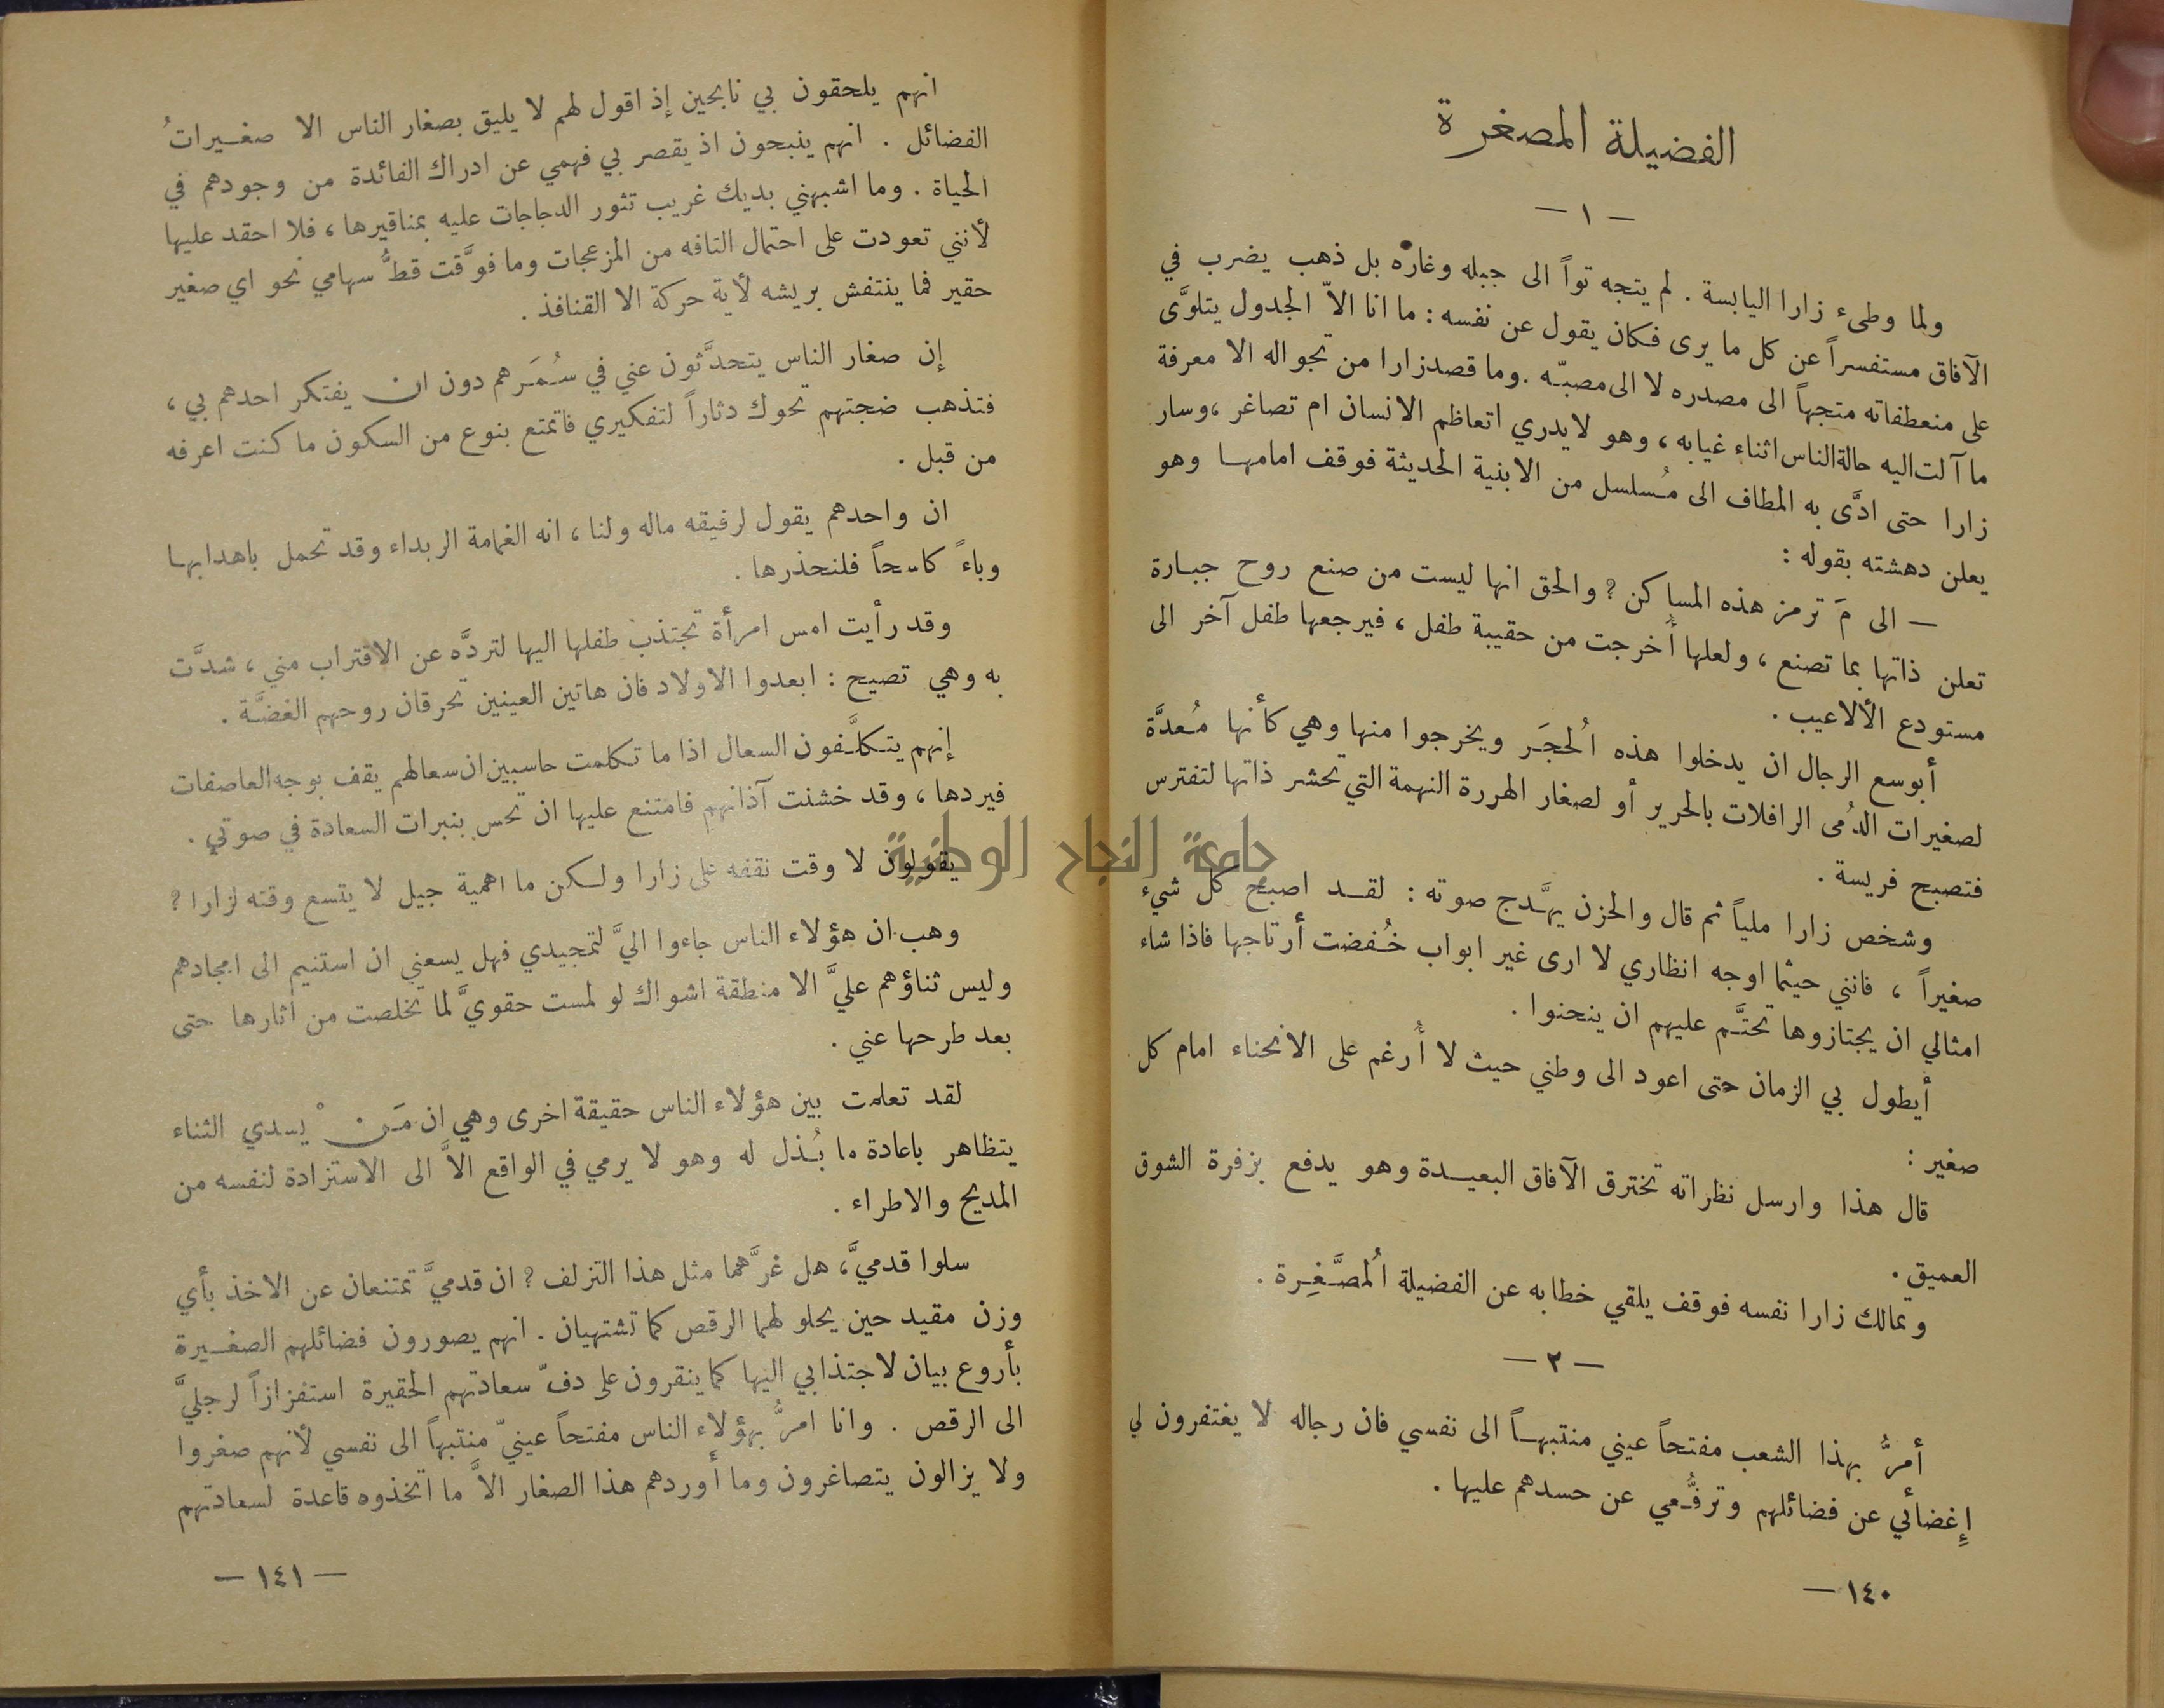 الفضيلة المصغرة
— ١ —
ولما وطىء زارا اليابسة . لم يتجه تواً الى جبله وغاره بل ذهب يضرب في
الآفاق مستفسراً عن كل ما يرى فكان يقول عن نفسه : ما انا الاّ الجدول يتلوَّى
على منعطفاته متجهاً الى مصدره لا الى مصبّه . وما قصد زارا من تجواله الا معرفة
ما آلت اليه حالة الناس اثناء غيابه ، وهو لا يدري اتعاظم الانسان ام تصاغر ، وسار
زارا حتى ادَّى به المطاف الى مُسلسل من الابنية الحديثة فوقف امامها وهو
يعلن دهشته بقوله :
— الى مَ ترمز هذه المساكن ? والحق انها ليست من صنع روح جبارة
تعلن ذاتها بما تصنع ، ولعلها أُخرجت من حقيبة طفل ، فيرجعها طفل آخر الى
مستودع الألاعيب .
أبوسع الرجال ان يدخلوا هذه اُلحجَر ويخرجوا منها وهي كأنها مُعدَّة
لصغيرات الدُمى الرافلات بالحرير أو لصغار الهررة النهمة التي تحشر ذاتها لتفترس
فتصبح فريسة .
وشخص زارا ملياً ثم قال والحزن يهَّدج صوته : لقد اصبح كل شيء
صغيراً ، فانني حيثما اوجه انظاري لا ارى غير ابواب خُفضت أرتاجها فاذا شاء
امثالي ان يجتازوها تحتَّم عليهم ان ينحنوا .
أيطول بي الزمان حتى اعود الى وطني حيث لا أُرغم على الانحناء امام كل
صغير :
قال هذا وارسل نظراته تخترق الآفاق البعيدة وهو يدفع بزفرة الشوق
العميق .
وتمالك زارا نفسه فوقف يلقي خطابه عن الفضيلة اُلمصَّغِرة .
— ٢ —
أمرُّ بهذا الشعب مفتحاً عيني منتبهاً الى نفسي فان رجاله لا يغتفرون لي
إِغضائي عن فضائلهم وترفُّعي عن حسدهم عليها .
١٤٠ —
انهم يلحقون بي نابحين إذ اقول لهم لا يليق بصغار الناس الا صغيراتُ
الفضائل . انهم ينبحون اذ يقصر بي فهمي عن ادراك الفائدة من وجودهم في
الحياة . وما اشبهني بديك غريب تثور الدجاجات عليه بمناقيرها ، فلا احقد عليها
لأنني تعودت على احتمال التافه من المزعجات وما فوَّقت قطُّ سهامي نحو اي صغير
حقير فما ينتفش بريشه لأية حركة الا القنافذ .
إن صغار الناس يتحدَّثون عني في سُمَرهم دون ان يفتكر احدهم بي ،
فتذهب ضجتهم تحوك دثاراً لتفكيري فاتمتع بنوع من السكون ما كنت اعرفه
من قبل .
ان واحدهم يقول لرفيقه ماله ولنا ، انه الغمامة الربداء وقد تحمل باهدابها
وباءً كاسحاً فلنحذرها .
وقد رأيت امس امرأة تجتذب طفلها اليها لتردَّه عن الاقتراب مني ، شدَّت
به وهي تصيح : ابعدوا الاولاد فان هاتين العينين تحرقان روحهم الغضَّة .
إنهم يتكلَّفون السعال اذا ما تكلمت حاسبين ان سعالهم يقف بوجه العاصفات
فيردها ، وقد خشنت آذانهم فامتنع عليها ان تحس بنبرات السعادة في صوتي .
يقولون لا وقت نقفه على زارا ولكن ما اهمية جيل لا يتسع وقته لزارا ?
وهب ان هؤلاء الناس جاءوا اليَّ لتمجيدي فهل يسعني ان استنيم الى امجادهم
وليس ثناؤهم عليَّ الا منطقة اشواك لو لمست حقويَّ لما تخلصت من آثارها حتى
بعد طرحها عني .
لقد تعلمت بين هؤلاء الناس حقيقة اخرى وهي ان مَنْ يسدي الثناء
يتظاهر باعادة ما بُذل له وهو لا يرمي في الواقع الاَّ الى الاستزادة لنفسه من
المديح والاطراء .
سلوا قدميَّ ، هل غرَّهما مثل هذا التزلف ? ان قدميَّ تمتنعان عن الاخذ بأي
وزن مقيد حين يحلو لهما الرقص كما تشتهيان . انهم يصورون فضائلهم الصغيرة
بأروع بيان لاجتذابي اليها كما ينقرون على دفّ سعادتهم الحقيرة استفزازاً لرجليَّ
الى الرقص . وانا امرُّ بهؤلاء الناس مفتحاً عينيّ منتبهاً الى نفسي لأنهم صغروا
ولا يزالون يتصاغرون وما أوردهم هذا الصغار الاَّ ما اتخذوه قاعدة لسعادتهم
— ١٤١ —
جامعة النجاح الوطنية